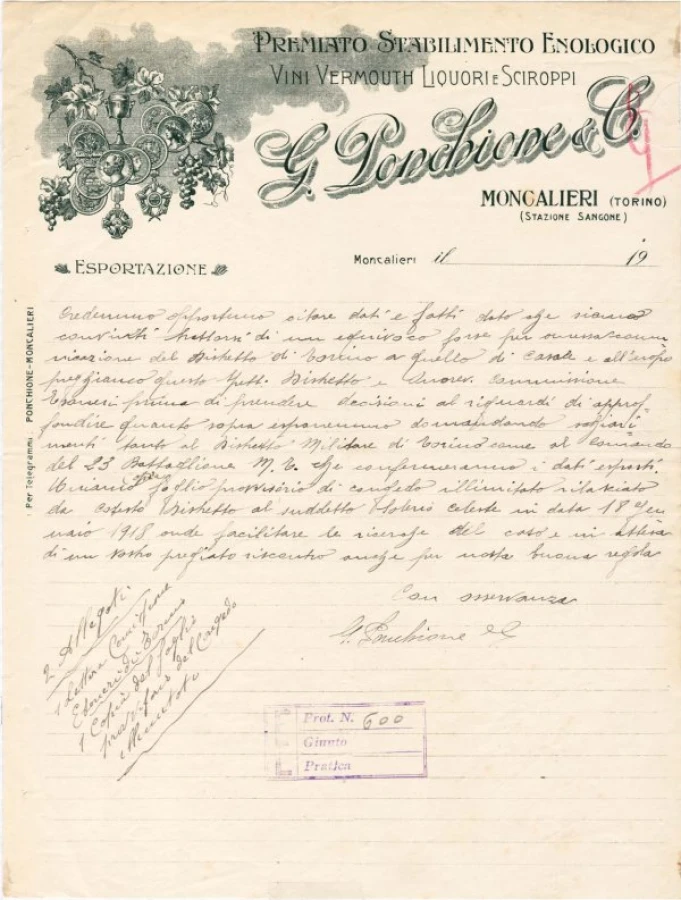 PREMIATO STABILIMENTO ENOLOGICO
VINI VERMOUTH LIQUORI E SCIROPPI
G. Ponchione & C.
MONCALIERI (TORINO)
(STAZIONE SANGONE)
ESPORTAZIONE
Moncalieri il 19
Per Telegrammi PONCHIONE-MONCALIERI
Crediamo opportuno citare dati e fatti dato che siamo
convinti trattarsi di un equivoco forse per omessa comu-
nicazione del Distretto di Torino a quello di Casale e all'uopo
preghiamo questo Spett. Distretto e Onorev. Commissione
Esoneri prima di prendere decisioni al riguardo di approf-
fondire quanto sopra esponemmo domandando
menti tanto al Distretto Militare di Torino come al Comando
del 23 Battaglione M. T. che confermeranno i dati esposti.
Uniamo foglio provvisorio di congedo illimitato rilasciato
da Distretto al suddetto Celeste in data 18 Gen
naio 1918 onde facilitare le ricerche del caso e in attesa
di un Vostro pregiato riscontro anche per nostra buona regola
Con osservanza
G. Ponchione & C
2 Allegati
1 Lettera
Esoneri di Torino
1 Copia del foglio
del Congedo
illimitato
Prot. N. 600
Giunto
Pratica